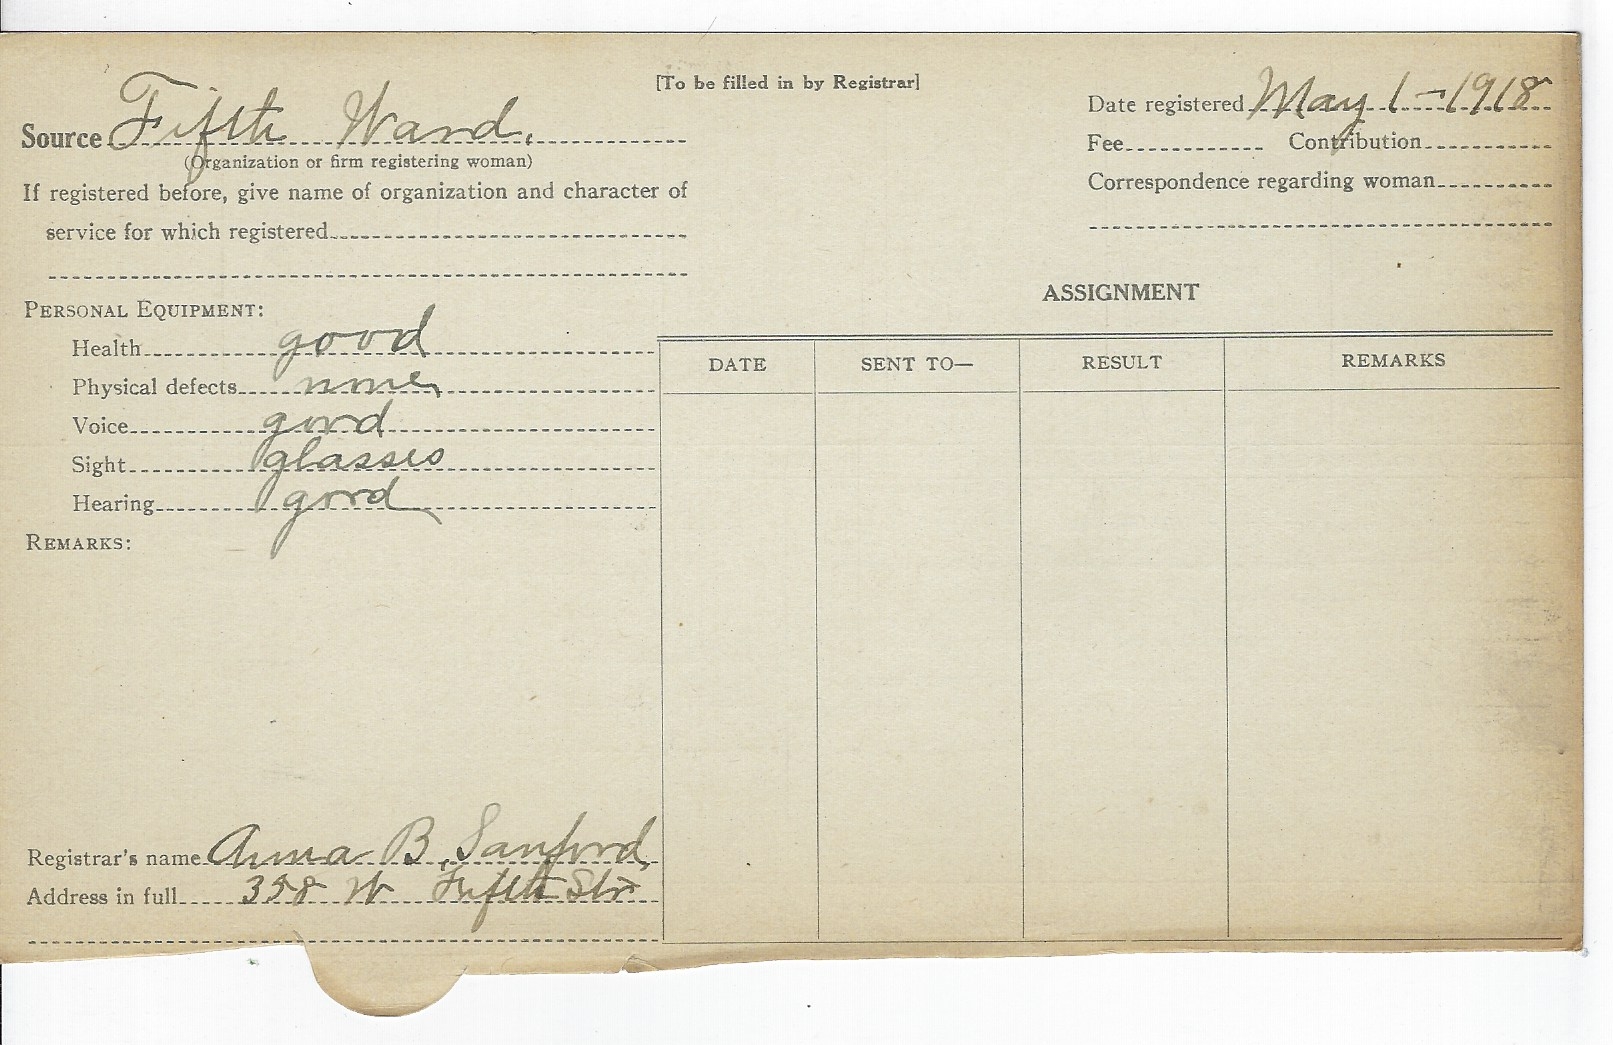 [To be filled in by Registrar]
Source Fifth Ward.
(Organization or firm registering woman)
If registered before, give name of organization and character of
service for which registered
Date registered May 1 - 1918
Fee Contribution
Correspondence regarding woman
PERSONAL EQUIPMENT:
Health good
Physical defects none
Voice good
Sight glasses
Hearing good
REMARKS:
Registrar's name Anna B. Sanford,
Address in full 358 W Fifth Str
ASSIGNMENT
DATE SENT TO— RESULT REMARKS